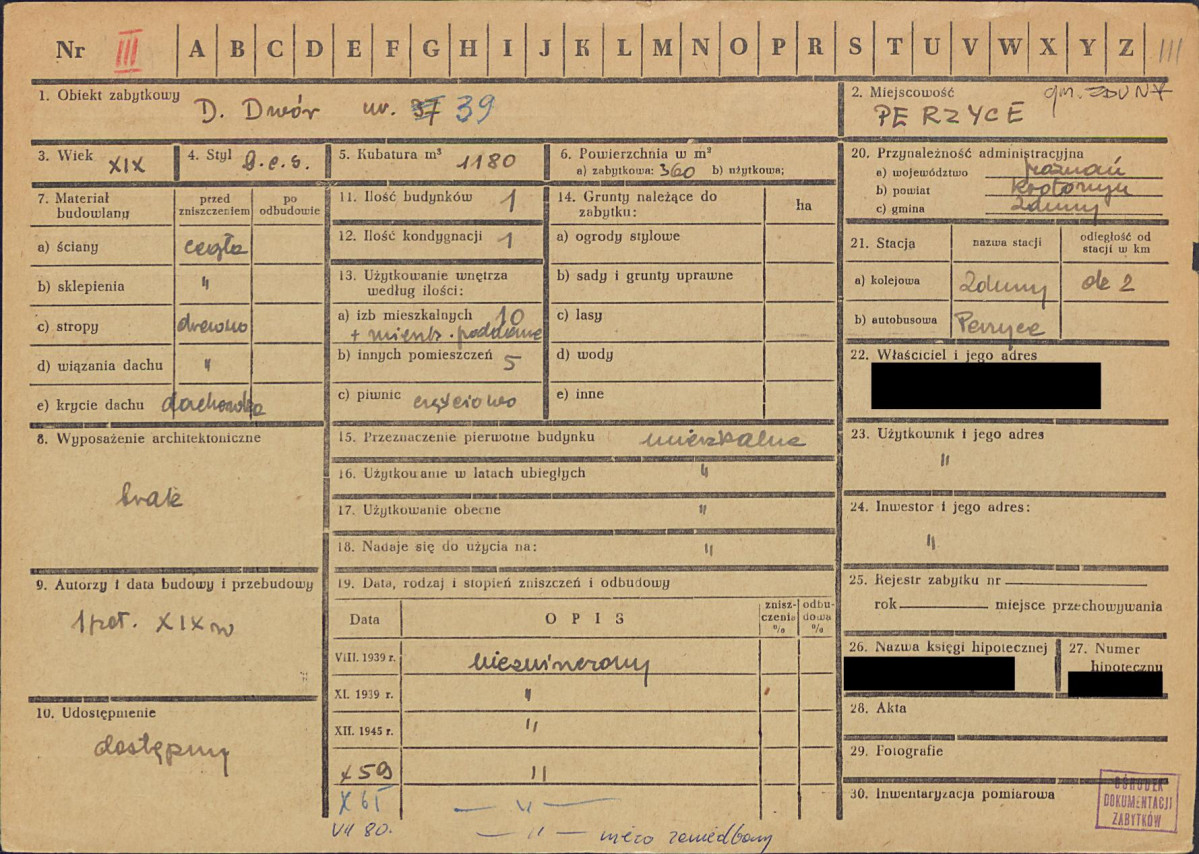 Nr III A B C D E F G H I J K L M N O P R S T U V W X Y Z III
1. Obiekt zabytkowy D. Dwór nr. 37 39
2. Miejscowość gm. ZDUNY
PERZYCE
3. Wiek XIX
4. Styl b.c.s.
5. Kubatura m³ 1180
6. Powierzchnia w m²
a) zabytkowa: 360 b) użytkowa;
7. Materiał budowlany
przed zniszczeniem
po odbudowie
a) ściany cegła
b) sklepienia "
c) stropy drewno
d) wiązania dachu "
e) krycie dachu dachówka
8. Wyposażenie architektoniczne
brak
9. Autorzy i data budowy i przebudowy
1 poł. XIX w
10. Udostępnienie
dostępny
11. Ilość budynków 1
12. Ilość kondygnacji 1
13. Użytkowanie wnętrza
według ilości:
a) izb mieszkalnych 10
+ mieszk. poddasze
b) innych pomieszczeń 5
c) piwnic częściowo
14. Grunty należące do
zabytku: ha
a) ogrody stylowe
b) sady i grunty uprawne
c) lasy
d) wody
e) inne
15. Przeznaczenie pierwotne budynku mieszkalne
16. Użytkowanie w latach ubiegłych "
17. Użytkowanie obecne "
18. Nadaje się do użycia na: "
19. Data, rodzaj i stopień zniszczeń i odbudowy
Data OPIS zniszczenia % odbudowa %
VIII. 1939 r. niezniszczony
XI. 1939 r. "
XII. 1945 r. "
X 59 "
X 65 — " —
VII 80. — " — nieco zaniedbany
20. Przynależność administracyjna
a) województwo poznań
b) powiat Krotoszyn
c) gmina Zduny
21. Stacja
nazwa stacji
odległość od stacji w km
a) kolejowa Zduny ok 2
b) autobusowa Perzyce
22. Właściciel i jego adres
23. Użytkownik i jego adres
"
24. Inwestor i jego adres:
"
25. Rejestr zabytku nr
rok miejsce przechowywania
26. Nazwa księgi hipotecznej
27. Numer
hipoteczny
28. Akta
29. Fotografie
30. Inwentaryzacja pomiarowa
OŚRODEK
DOKUMENTACJI
ZABYTKÓW